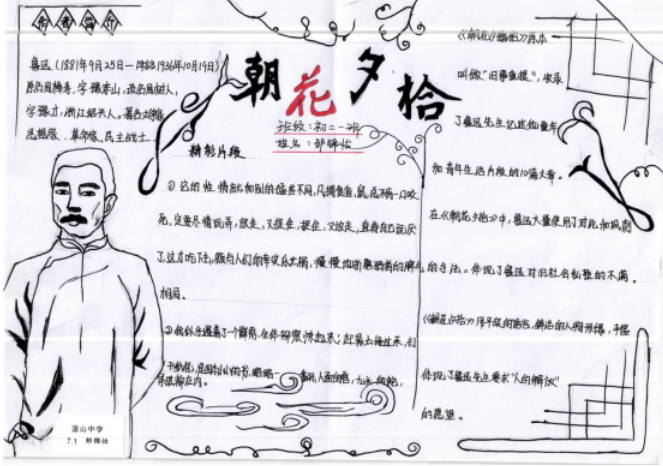 作者简介
鲁迅(1881年9月25日—1936年10月19日)
原名周樟寿,字豫山,改名周树人,
字豫才,浙江绍兴人。著名文学家
思想家、革命家、民主战士
朝花夕拾
班级:初二一班
姓名:
精彩片段
① 它的性情就和别的猛兽不同,凡捕食雀、鼠,总不肯一口咬
死,定要尽情玩弄,放走,又捉住,捉住,又放走,直待自己玩厌
了,这才吃下去,颇与人们的幸灾乐祸,慢慢地折磨弱者的坏脾气
相同。
②我似乎遇着了一个霹雳,全体都震悚起来;赶紧去接过来,打
开纸包,是四本小小的书,略略一翻,人面的兽,九头的蛇,
果然都在内。
《朝花夕拾》原本
叫做"旧事重提",收录
了鲁迅先生记述他童年
和青年生活片段的10篇文章。
在《朝花夕拾》中,鲁迅大量使用了对比和讽刺
的手法。体现了鲁迅对旧社会私塾的不满。
《朝花夕拾》
体现了鲁迅先生要求"人的解放"
的愿望。
富山中学
7.1